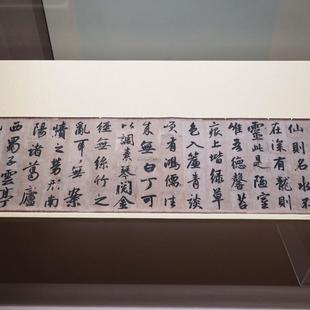 仙則名水不
在深有龍則
靈此是陋室
惟吾德馨苔
痕上堦綠草
色入簾青談
笑有鴻儒往
来無白丁可
以調素琴閱金
經無絲竹之
亂耳無案
牘之勞形南
陽諸葛廬
西蜀子雲亭